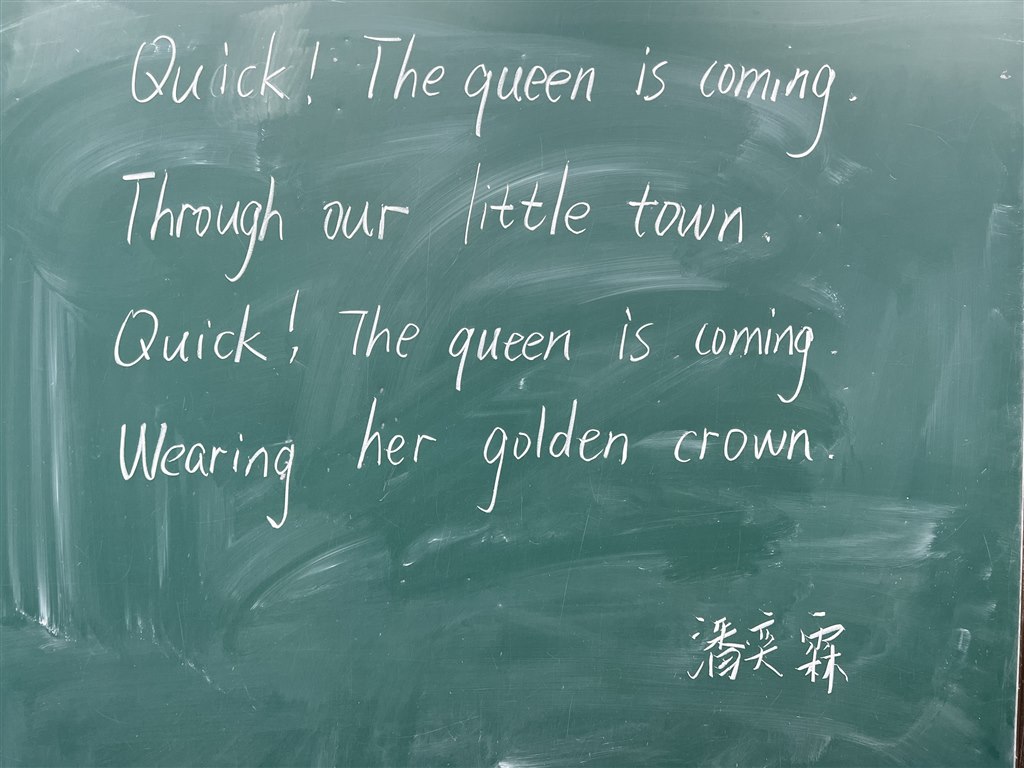 Quick! The queen is coming.
Through our little town.
Quick! The queen is coming.
Wearing her golden crown.
潘奕霖